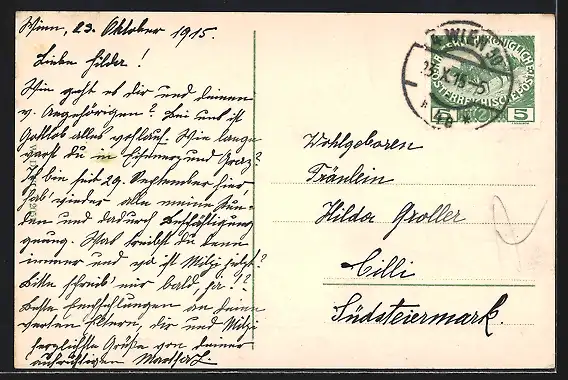 Wien, 23. Oktober 1915.
Liebe Hilda!
Wie geht es dir und deinen
w. Angehörigen? Bei uns ist
Gottlob alles wohlauf. Wie lange
warst du in Eisenerz und Graz?
Ich bin seit 29. September hier,
hab' wieder alle meine Stun-
den und dadurch Beschäftigung
genug. Was treibst du denn
immer und wo ist Mitzi jetzt?
Bitte schreib' mir bald, ja!?
Beste Empfehlungen an deine
werten Eltern, dir und Mitzi
herzlichste Grüße von deiner
aufrichtigen
Wohlgeboren
Fräulein
Hilda Groller
Cilli
Südsteiermark.
WIEN
KÖNIGLICHE
ÖSTERREICHISCHE POST
5 5